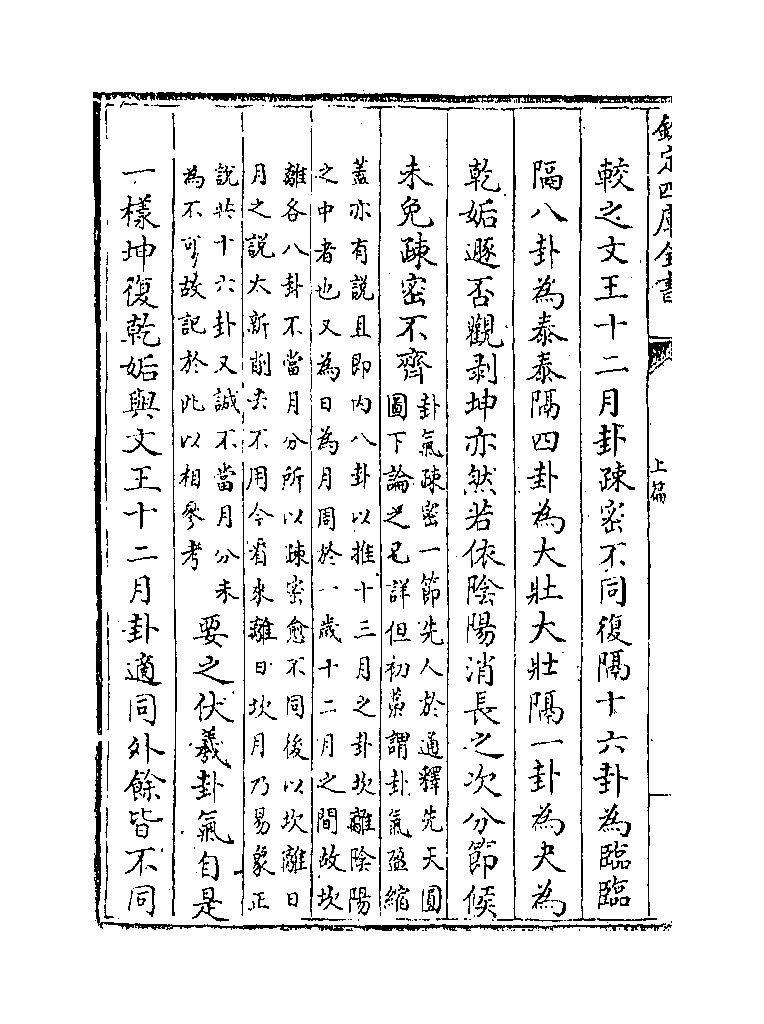 欽定四庫全書
上篇
較之文王十二月卦疎密不同復隔十六卦為臨臨
隔八卦為泰泰隔四卦為大壯大壯隔一卦為夬為
乾姤遯否觀剥坤亦然若依陰陽消長之次分節候
未免疎密不齊
卦氣疎密一節先人於通釋先天圓
圖下論之已詳但初藁謂卦氣盈縮
蓋亦有説且即内八卦以推十三月之卦坎離隂陽
之中者也又為日為月周於一歲十二月之間故坎
離各八卦不當月分所以疎密愈不同後以坎離日
月之説太新削去不用今看來離日坎月乃易象正
説此十六卦又誠不當月分未
為不可故記於此以相參考
要之伏羲卦氣自是
一樣坤復乾姤與文王十二月卦適同外餘皆不同